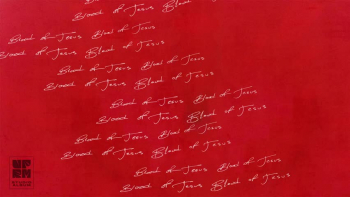 Blood of Jesus Blood of Jesus
Blood of Jesus Blood of Jesus
Blood of Jesus Blood of Jesus
Blood of Jesus Blood of Jesus
Blood of Jesus Blood of Jesus
Blood of Jesus Blood of Jesus
Blood of Jesus Blood of Jesus
Blood of Jesus Blood of Jesus
Blood of Jesus Blood of Jesus
Blood of Jesus Blood of Jesus
UPRM